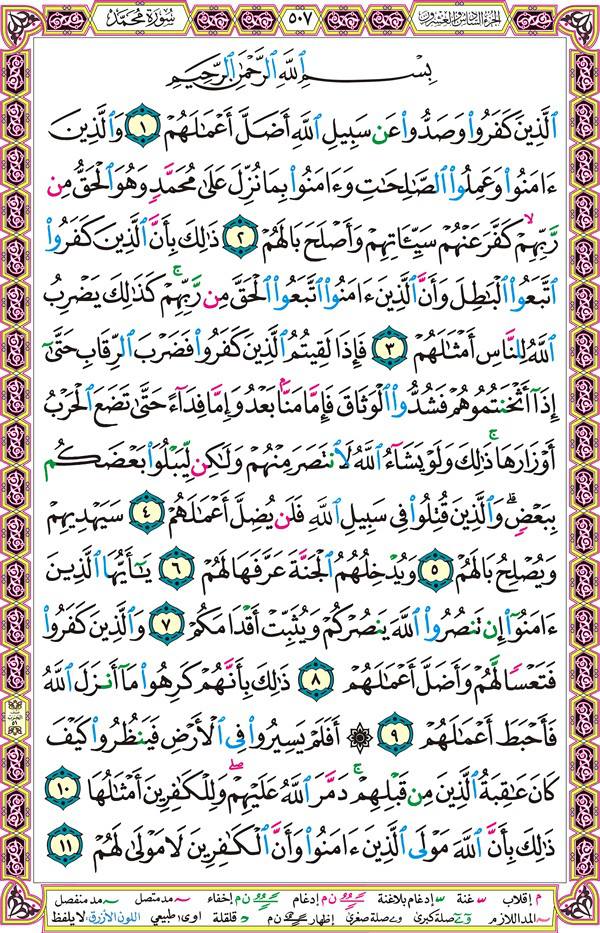 سُورَةُ مُحَمَّدٍ
٥٠٧
الجزء السادس والعشرون
بِسْمِ ٱللَّهِ ٱلرَّحْمَٰنِ ٱلرَّحِيمِ
ٱلَّذِينَ كَفَرُوا۟ وَصَدُّوا۟ عَن سَبِيلِ ٱللَّهِ أَضَلَّ أَعْمَٰلَهُمْ ١ وَٱلَّذِينَ
ءَامَنُوا۟ وَعَمِلُوا۟ ٱلصَّٰلِحَٰتِ وَءَامَنُوا۟ بِمَا نُزِّلَ عَلَىٰ مُحَمَّدٍ وَهُوَ ٱلْحَقُّ مِن
رَّبِّهِمْ ۙ كَفَّرَ عَنْهُمْ سَيِّـَٔاتِهِمْ وَأَصْلَحَ بَالَهُمْ ٢ ذَٰلِكَ بِأَنَّ ٱلَّذِينَ كَفَرُوا۟
ٱتَّبَعُوا۟ ٱلْبَٰطِلَ وَأَنَّ ٱلَّذِينَ ءَامَنُوا۟ ٱتَّبَعُوا۟ ٱلْحَقَّ مِن رَّبِّهِمْ ۚ كَذَٰلِكَ يَضْرِبُ
ٱللَّهُ لِلنَّاسِ أَمْثَٰلَهُمْ ٣ فَإِذَا لَقِيتُمُ ٱلَّذِينَ كَفَرُوا۟ فَضَرْبَ ٱلرِّقَابِ حَتَّىٰٓ
إِذَآ أَثْخَنتُمُوهُمْ فَشُدُّوا۟ ٱلْوَثَاقَ فَإِمَّا مَنًّۢا بَعْدُ وَإِمَّا فِدَآءً حَتَّىٰ تَضَعَ ٱلْحَرْبُ
أَوْزَارَهَا ۚ ذَٰلِكَ وَلَوْ يَشَآءُ ٱللَّهُ لَٱنتَصَرَ مِنْهُمْ وَلَٰكِن لِّيَبْلُوَا۟ بَعْضَكُم
بِبَعْضٍ ۗ وَٱلَّذِينَ قُتِلُوا۟ فِى سَبِيلِ ٱللَّهِ فَلَن يُضِلَّ أَعْمَٰلَهُمْ ٤ سَيَهْدِيهِمْ
وَيُصْلِحُ بَالَهُمْ ٥ وَيُدْخِلُهُمُ ٱلْجَنَّةَ عَرَّفَهَا لَهُمْ ٦ يَٰٓأَيُّهَا ٱلَّذِينَ
ءَامَنُوٓا۟ إِن تَنصُرُوا۟ ٱللَّهَ يَنصُرْكُمْ وَيُثَبِّتْ أَقْدَامَكُمْ ٧ وَٱلَّذِينَ كَفَرُوا۟
فَتَعْسًا لَّهُمْ وَأَضَلَّ أَعْمَٰلَهُمْ ٨ ذَٰلِكَ بِأَنَّهُمْ كَرِهُوا۟ مَآ أَنزَلَ ٱللَّهُ
فَأَحْبَطَ أَعْمَٰلَهُمْ ٩ ۞ أَفَلَمْ يَسِيرُوا۟ فِى ٱلْأَرْضِ فَيَنظُرُوا۟ كَيْفَ
كَانَ عَٰقِبَةُ ٱلَّذِينَ مِن قَبْلِهِمْ ۚ دَمَّرَ ٱللَّهُ عَلَيْهِمْ ۖ وَلِلْكَٰفِرِينَ أَمْثَٰلُهَا ١٠
ذَٰلِكَ بِأَنَّ ٱللَّهَ مَوْلَى ٱلَّذِينَ ءَامَنُوا۟ وَأَنَّ ٱلْكَٰفِرِينَ لَا مَوْلَىٰ لَهُمْ ١١
م إقلاب غنة إدغام بلاغنة ن م إدغام ن م إخفاء مد متصل مد منفصل
المد اللازم صلة كبرى صلة صغرى إظهار ن م قلقلة اوى طبيعي اللون الأزرق: لا يلفظ